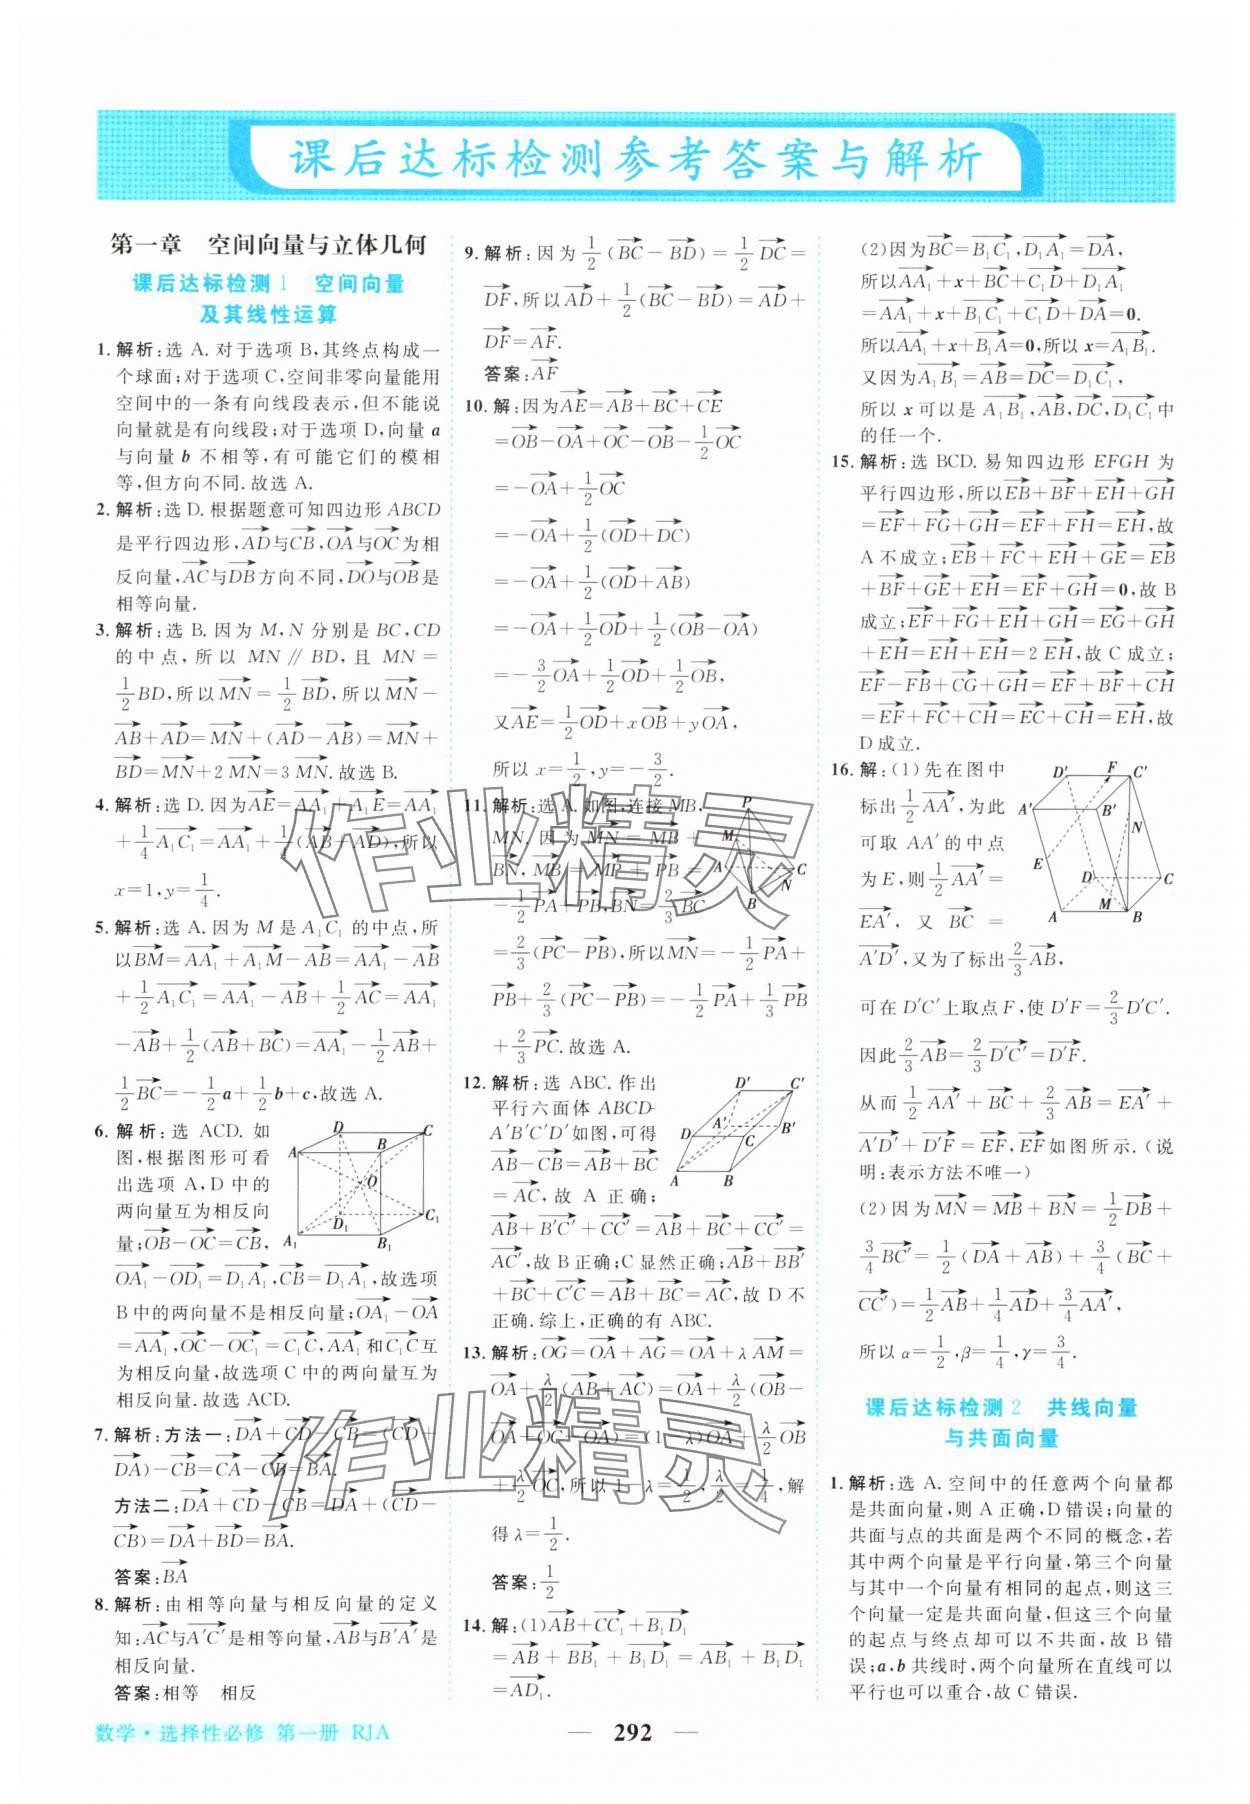 课后达标检测参考答案与解析
第一章 空间向量与立体几何
课后达标检测1 空间向量
及其线性运算
1. 解析:选 A. 对于选项 B,其终点构成一
个球面;对于选项 C,空间非零向量能用
空间中的一条有向线段表示,但不能说
向量就是有向线段;对于选项 D,向量 a
与向量 b 不相等,有可能它们的模相
等,但方向不同.故选 A.
2. 解析:选 D. 根据题意可知四边形 ABCD
是平行四边形,$\overrightarrow{AD}$与$\overrightarrow{CB}$,$\overrightarrow{OA}$与$\overrightarrow{OC}$为相
反向量,$\overrightarrow{AC}$与$\overrightarrow{DB}$方向不同,$\overrightarrow{DO}$与$\overrightarrow{OB}$是
相等向量.
3. 解析:选 B. 因为 M,N 分别是 BC,CD
的中点,所以 MN∥BD,且 MN=
$\frac{1}{2}$BD,所以$\overrightarrow{MN}=\frac{1}{2}\overrightarrow{BD}$,所以$\overrightarrow{MN}-$
$\overrightarrow{AB}+\overrightarrow{AD}=\overrightarrow{MN}+(\overrightarrow{AD}-\overrightarrow{AB})=\overrightarrow{MN}+$
$\overrightarrow{BD}=\overrightarrow{MN}+2\overrightarrow{MN}=3\overrightarrow{MN}$.故选 B.
4. 解析:选 D. 因为$\overrightarrow{AE}=\overrightarrow{AA_1}+\overrightarrow{A_1E}=\overrightarrow{AA_1}$
$+\frac{1}{4}\overrightarrow{A_1C_1}=\overrightarrow{AA_1}+\frac{1}{4}(\overrightarrow{AB}+\overrightarrow{AD})$,所以
$x=1,y=\frac{1}{4}$.
5. 解析:选 A. 因为 M 是 $A_1C_1$ 的中点,所
以$\overrightarrow{BM}=\overrightarrow{AA_1}+\overrightarrow{A_1M}-\overrightarrow{AB}=\overrightarrow{AA_1}-\overrightarrow{AB}$
$+\frac{1}{2}\overrightarrow{A_1C_1}=\overrightarrow{AA_1}-\overrightarrow{AB}+\frac{1}{2}\overrightarrow{AC}=\overrightarrow{AA_1}$
$-\overrightarrow{AB}+\frac{1}{2}(\overrightarrow{AB}+\overrightarrow{BC})=\overrightarrow{AA_1}-\frac{1}{2}\overrightarrow{AB}+$
$\frac{1}{2}\overrightarrow{BC}=-\frac{1}{2}a+\frac{1}{2}b+c$,故选 A.
6. 解析:选 ACD. 如
图,根据图形可看
出选项 A,D 中的
两向量互为相反向
量;$\overrightarrow{OB}-\overrightarrow{OC}=\overrightarrow{CB}$,
D C A B O D₁ C₁ A₁ B₁
$\overrightarrow{OA_1}-\overrightarrow{OD_1}=\overrightarrow{D_1A_1}$,$\overrightarrow{CB}=\overrightarrow{D_1A_1}$,故选项
B 中的两向量不是相反向量;$\overrightarrow{OA_1}-\overrightarrow{OA}$
$=\overrightarrow{AA_1}$,$\overrightarrow{OC}-\overrightarrow{OC_1}=\overrightarrow{C_1C}$,$\overrightarrow{AA_1}$和$\overrightarrow{C_1C}$互
为相反向量,故选项 C 中的两向量互为
相反向量.故选 ACD.
7. 解析:方法一:$\overrightarrow{DA}+\overrightarrow{CD}-\overrightarrow{CB}=(\overrightarrow{CD}+$
$\overrightarrow{DA})-\overrightarrow{CB}=\overrightarrow{CA}-\overrightarrow{CB}=\overrightarrow{BA}$.
方法二:$\overrightarrow{DA}+\overrightarrow{CD}-\overrightarrow{CB}=\overrightarrow{DA}+(\overrightarrow{CD}-$
$\overrightarrow{CB})=\overrightarrow{DA}+\overrightarrow{BD}=\overrightarrow{BA}$.
答案:$\overrightarrow{BA}$
8. 解析:由相等向量与相反向量的定义
知:$\overrightarrow{AC}$与$\overrightarrow{A'C'}$是相等向量,$\overrightarrow{AB}$与$\overrightarrow{B'A'}$是
相反向量.
答案:相等 相反
9. 解析:因为$\frac{1}{2}(\overrightarrow{BC}-\overrightarrow{BD})=\frac{1}{2}\overrightarrow{DC}=$
$\overrightarrow{DF}$,所以$\overrightarrow{AD}+\frac{1}{2}(\overrightarrow{BC}-\overrightarrow{BD})=\overrightarrow{AD}+$
$\overrightarrow{DF}=\overrightarrow{AF}$.
答案:$\overrightarrow{AF}$
10. 解:因为$\overrightarrow{AE}=\overrightarrow{AB}+\overrightarrow{BC}+\overrightarrow{CE}$
$=\overrightarrow{OB}-\overrightarrow{OA}+\overrightarrow{OC}-\overrightarrow{OB}-\frac{1}{2}\overrightarrow{OC}$
$=-\overrightarrow{OA}+\frac{1}{2}\overrightarrow{OC}$
$=-\overrightarrow{OA}+\frac{1}{2}(\overrightarrow{OD}+\overrightarrow{DC})$
$=-\overrightarrow{OA}+\frac{1}{2}(\overrightarrow{OD}+\overrightarrow{AB})$
$=-\overrightarrow{OA}+\frac{1}{2}\overrightarrow{OD}+\frac{1}{2}(\overrightarrow{OB}-\overrightarrow{OA})$
$=-\frac{3}{2}\overrightarrow{OA}+\frac{1}{2}\overrightarrow{OD}+\frac{1}{2}\overrightarrow{OB}$,
又$\overrightarrow{AE}=\frac{1}{2}\overrightarrow{OD}+x\overrightarrow{OB}+y\overrightarrow{OA}$,
所以 $x=\frac{1}{2},y=-\frac{3}{2}$.
11. 解析:选 A. 如图,连接 MB,
MN. 因为$\overrightarrow{MN}=\overrightarrow{MB}+$
$\overrightarrow{BN}$,$\overrightarrow{MB}=\overrightarrow{MP}+\overrightarrow{PB}=$
P M A C N B
$-\frac{1}{2}\overrightarrow{PA}+\overrightarrow{PB}$,$\overrightarrow{BN}=\frac{2}{3}\overrightarrow{BC}=$
$\frac{2}{3}(\overrightarrow{PC}-\overrightarrow{PB})$,所以$\overrightarrow{MN}=-\frac{1}{2}\overrightarrow{PA}+$
$\overrightarrow{PB}+\frac{2}{3}(\overrightarrow{PC}-\overrightarrow{PB})=-\frac{1}{2}\overrightarrow{PA}+\frac{1}{3}\overrightarrow{PB}$
$+\frac{2}{3}\overrightarrow{PC}$.故选 A.
12. 解析:选 ABC. 作出
平行六面体 ABCD-
A'B'C'D'如图,可得
$\overrightarrow{AB}-\overrightarrow{CB}=\overrightarrow{AB}+\overrightarrow{BC}$
$=\overrightarrow{AC}$,故 A 正确;
D' C' A' B' D C A B
$\overrightarrow{AB}+\overrightarrow{B'C'}+\overrightarrow{CC'}=\overrightarrow{AB}+\overrightarrow{BC}+\overrightarrow{CC'}=$
$\overrightarrow{AC'}$,故 B 正确;C 显然正确;$\overrightarrow{AB}+\overrightarrow{BB'}$
$+\overrightarrow{BC}+\overrightarrow{C'C}=\overrightarrow{AB}+\overrightarrow{BC}=\overrightarrow{AC}$,故 D 不
正确.综上,正确的有 ABC.
13. 解析:$\overrightarrow{OG}=\overrightarrow{OA}+\overrightarrow{AG}=\overrightarrow{OA}+\lambda\overrightarrow{AM}=$
$\overrightarrow{OA}+\frac{\lambda}{2}(\overrightarrow{AB}+\overrightarrow{AC})=\overrightarrow{OA}+\frac{\lambda}{2}(\overrightarrow{OB}-$
$\overrightarrow{OA}+\overrightarrow{OC}-\overrightarrow{OA})=(1-\lambda)\overrightarrow{OA}+\frac{\lambda}{2}\overrightarrow{OB}$
$+\frac{\lambda}{2}\overrightarrow{OC}$,所以$1-\lambda=\frac{1}{2},\frac{\lambda}{2}=\frac{1}{4}$,解
得$\lambda=\frac{1}{2}$.
答案:$\frac{1}{2}$
14. 解:(1)$\overrightarrow{AB}+\overrightarrow{CC_1}+\overrightarrow{B_1D_1}$
$=\overrightarrow{AB}+\overrightarrow{BB_1}+\overrightarrow{B_1D_1}=\overrightarrow{AB_1}+\overrightarrow{B_1D_1}$
$=\overrightarrow{AD_1}$.
(2)因为$\overrightarrow{BC}=\overrightarrow{B_1C_1}$,$\overrightarrow{D_1A_1}=\overrightarrow{DA}$,
所以$\overrightarrow{AA_1}+x+\overrightarrow{BC}+\overrightarrow{C_1D}+\overrightarrow{D_1A_1}$
$=\overrightarrow{AA_1}+x+\overrightarrow{B_1C_1}+\overrightarrow{C_1D}+\overrightarrow{DA}=0$.
所以$\overrightarrow{AA_1}+x+\overrightarrow{B_1A}=0$,所以$x=\overrightarrow{A_1B_1}$.
又因为$\overrightarrow{A_1B_1}=\overrightarrow{AB}=\overrightarrow{DC}=\overrightarrow{D_1C_1}$,
所以 x 可以是 $\overrightarrow{A_1B_1}$,$\overrightarrow{AB}$,$\overrightarrow{DC}$,$\overrightarrow{D_1C_1}$中
的任一个.
15. 解析:选 BCD. 易知四边形 EFGH 为
平行四边形,所以$\overrightarrow{EB}+\overrightarrow{BF}+\overrightarrow{EH}+\overrightarrow{GH}$
$=\overrightarrow{EF}+\overrightarrow{FG}+\overrightarrow{GH}=\overrightarrow{EF}+\overrightarrow{FH}=\overrightarrow{EH}$,故
A 不成立;$\overrightarrow{EB}+\overrightarrow{FC}+\overrightarrow{EH}+\overrightarrow{GE}=\overrightarrow{EB}$
$+\overrightarrow{BF}+\overrightarrow{GE}+\overrightarrow{EH}=\overrightarrow{EF}+\overrightarrow{GH}=0$,故 B
成立;$\overrightarrow{EF}+\overrightarrow{FG}+\overrightarrow{EH}+\overrightarrow{GH}=\overrightarrow{EG}+\overrightarrow{GH}$
$+\overrightarrow{EH}=\overrightarrow{EH}+\overrightarrow{EH}=2\overrightarrow{EH}$,故 C 成立;
$\overrightarrow{EF}-\overrightarrow{FB}+\overrightarrow{CG}+\overrightarrow{GH}=\overrightarrow{EF}+\overrightarrow{BF}+\overrightarrow{CH}$
$=\overrightarrow{EF}+\overrightarrow{FC}+\overrightarrow{CH}=\overrightarrow{EC}+\overrightarrow{CH}=\overrightarrow{EH}$,故
D 成立.
16. 解:(1)先在图中
标出$\frac{1}{2}\overrightarrow{AA'}$,为此
可取 AA'的中点
为 E,则$\frac{1}{2}\overrightarrow{AA'}=$
$\overrightarrow{EA'}$,又 $\overrightarrow{BC}=$
D' F C' A' B' N E D C M A B
$\overrightarrow{A'D'}$,又为了标出$\frac{2}{3}\overrightarrow{AB}$,
可在 D'C'上取点 F,使 $D'F=\frac{2}{3}D'C'$.
因此$\frac{2}{3}\overrightarrow{AB}=\frac{2}{3}\overrightarrow{D'C'}=\overrightarrow{D'F}$.
从而$\frac{1}{2}\overrightarrow{AA'}+\overrightarrow{BC}+\frac{2}{3}\overrightarrow{AB}=\overrightarrow{EA'}+$
$\overrightarrow{A'D'}+\overrightarrow{D'F}=\overrightarrow{EF}$,$\overrightarrow{EF}$如图所示.(说
明:表示方法不唯一)
(2)因为$\overrightarrow{MN}=\overrightarrow{MB}+\overrightarrow{BN}=\frac{1}{2}\overrightarrow{DB}+$
$\frac{3}{4}\overrightarrow{BC'}=\frac{1}{2}(\overrightarrow{DA}+\overrightarrow{AB})+\frac{3}{4}(\overrightarrow{BC}+$
$\overrightarrow{CC'})=\frac{1}{2}\overrightarrow{AB}+\frac{1}{4}\overrightarrow{AD}+\frac{3}{4}\overrightarrow{AA'}$,
所以$\alpha=\frac{1}{2},\beta=\frac{1}{4},\gamma=\frac{3}{4}$.
课后达标检测2 共线向量
与共面向量
1. 解析:选 A. 空间中的任意两个向量都
是共面向量,则 A 正确,D 错误;向量的
共面与点的共面是两个不同的概念,若
其中两个向量是平行向量,第三个向量
与其中一个向量有相同的起点,则这三
个向量一定是共面向量,但这三个向量
的起点与终点却可以不共面,故 B 错
误;a,b 共线时,两个向量所在直线可以
平行也可以重合,故 C 错误.
作业精灵
作业精灵
数学·选择性必修 第一册 RJA
— 292 —